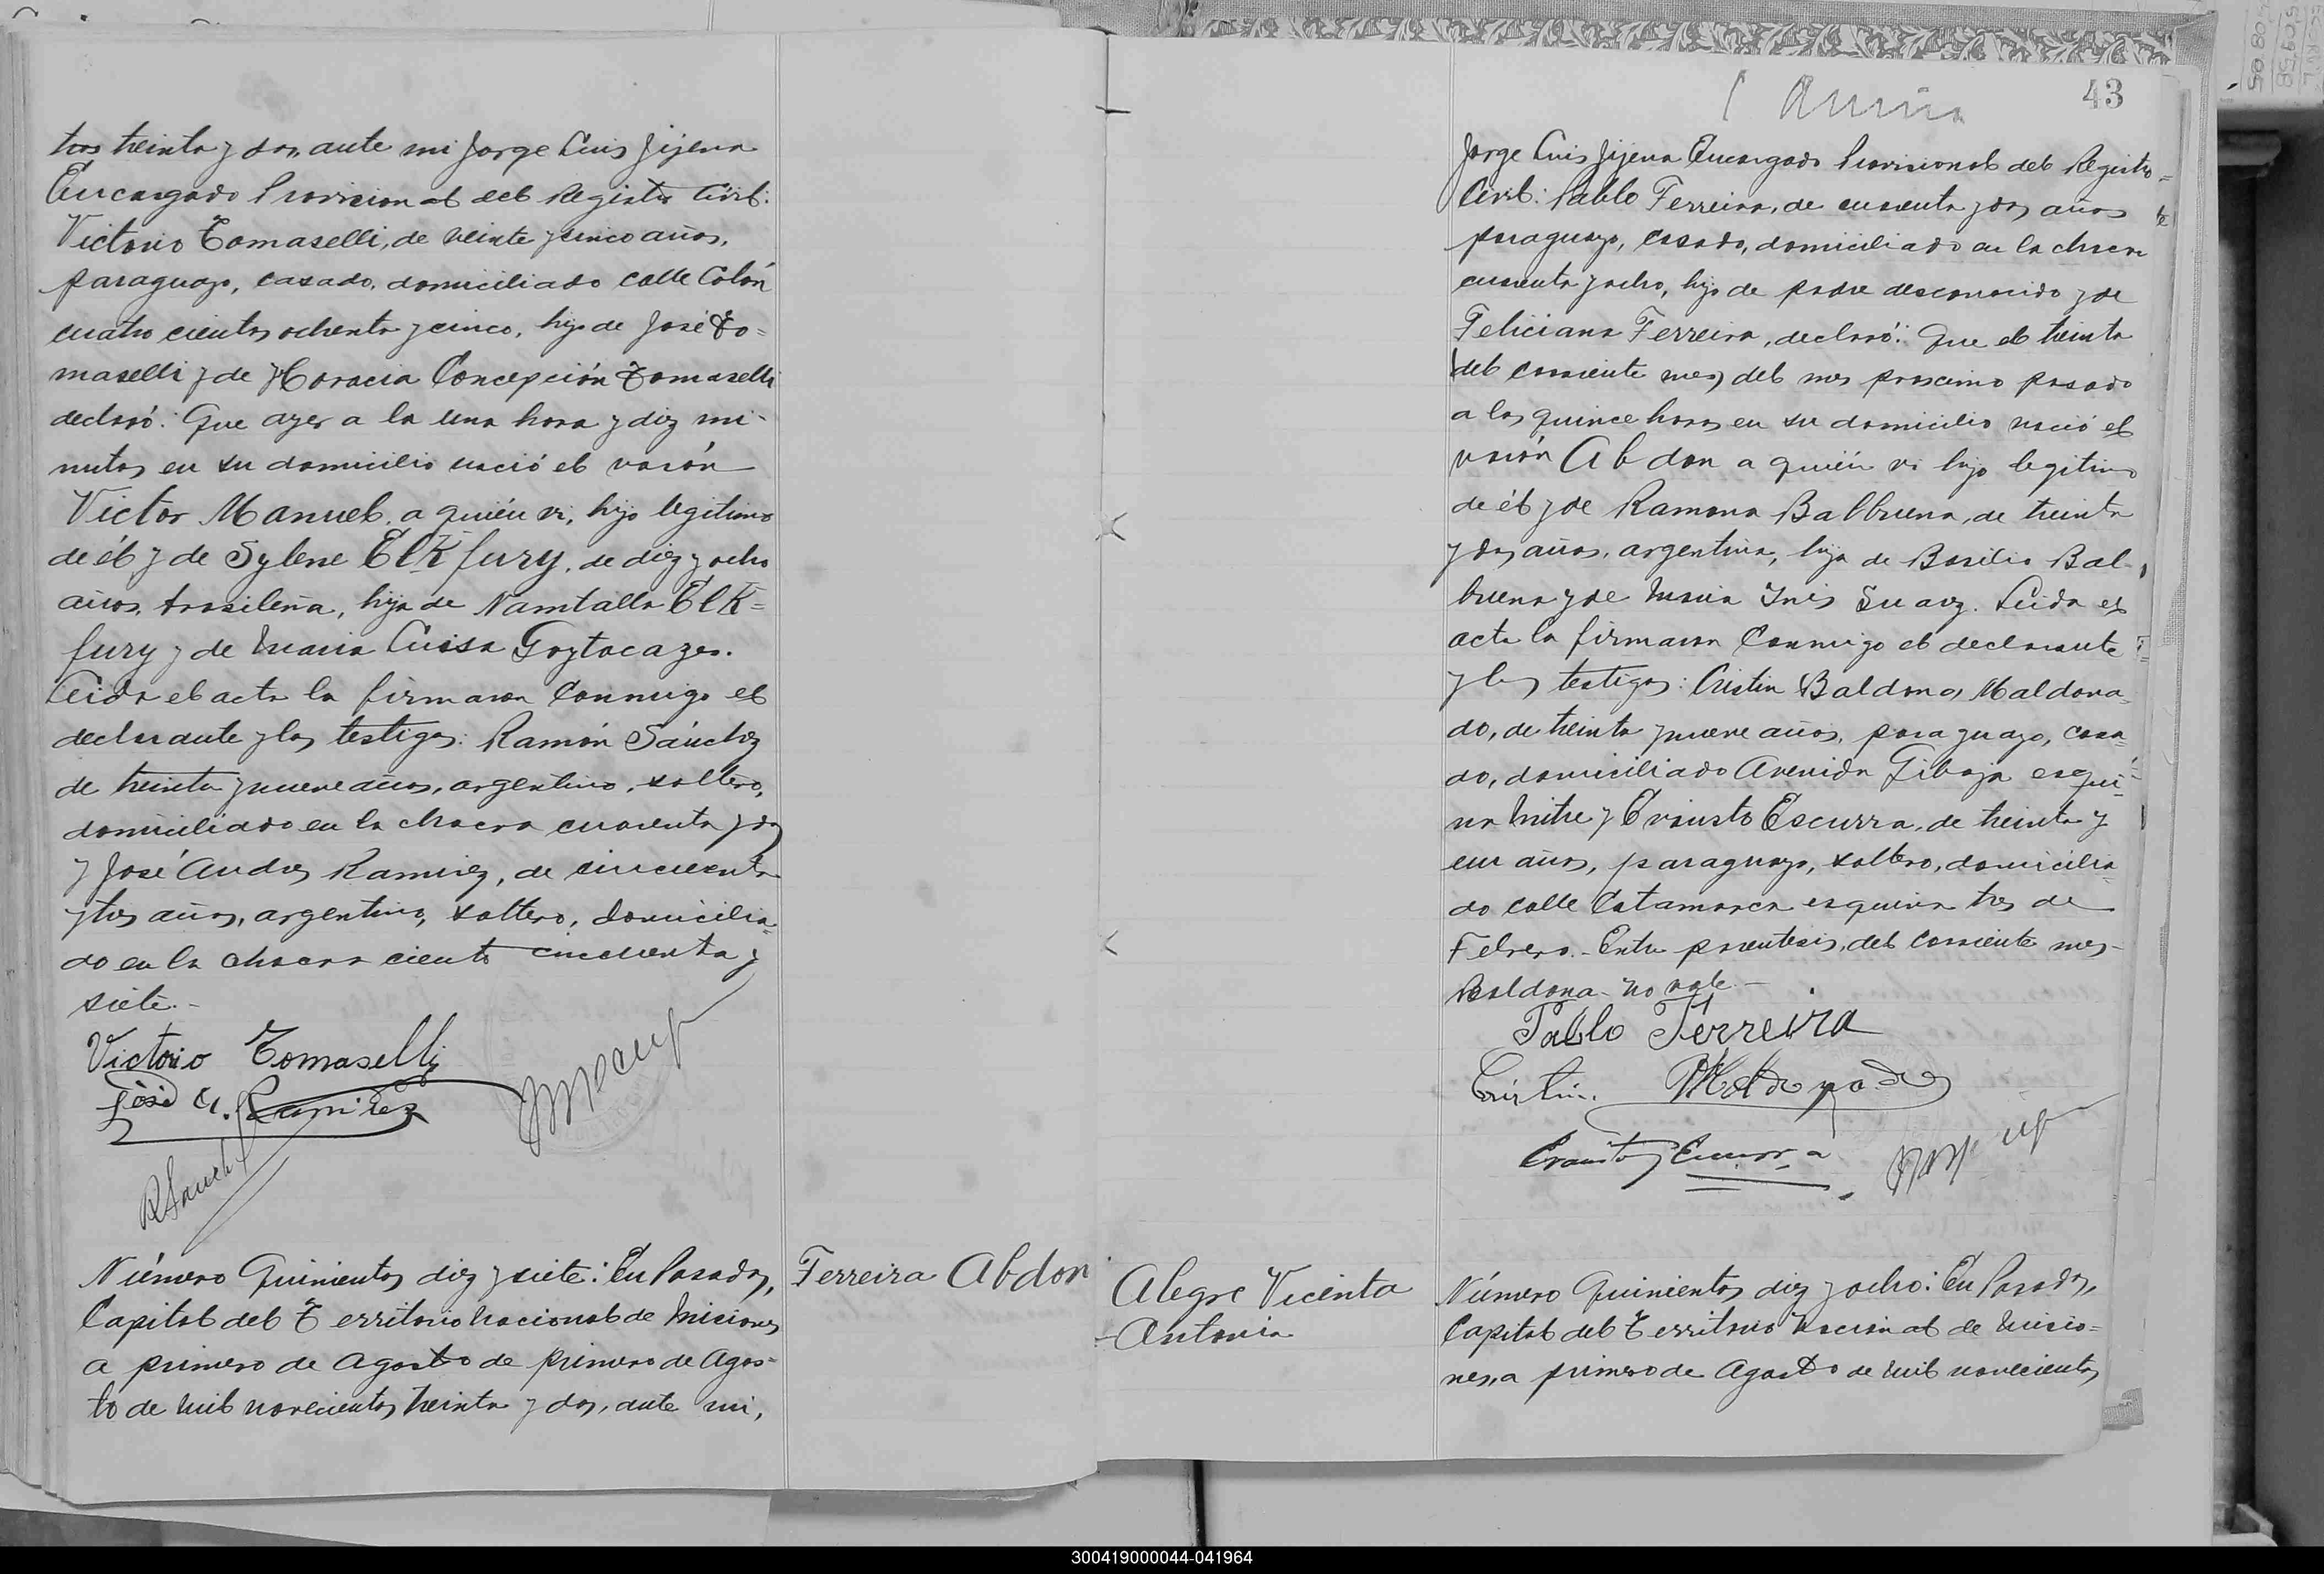 tos treinta y dos, ante mi Jorge Luis Jijena
Encargado Provisional del Registro Civil:
Victorio Tomaselli, de veinte y cinco años,
paraguayo, casado, domiciliado calle Colón
cuatro cientos ochenta y cinco, hijo de José To=
maselli y de Horacia Concepción Tomaselli
declaró: Que ayer a la una hora y diez mi-
nutos en su domicilio nació el varón
Victor Manuel, a quién vi, hijo legitimo
de él y de Sylene Elkfury, de diez y ocho
años, brasileña, hija de Namtalla Elk=
fury y de Maria Luisa Goytacazes.
Leida el acta la firmaron conmigo el
declarante y los testigos: Ramón Sánchez
de treinta y nueve años, argentino, soltero,
domiciliado en la chacra cuarenta y dos
y José Andres Ramirez, de cincuenta
y tres años, argentino, soltero, domicilia-
do en la chacra ciento cincuenta y
siete.-
Victorio Tomaselli
José A. Ramirez
R Sanchez
Número Quinientos diez y siete: En Posadas,
Capital del Territorio Nacional de Misiones
a primero de Agosto de primero de Agos-
to de mil novecientos treinta y dos, ante mi,
Ferreira Abdon
43
Jorge Luis Jijena Encargado Provisional del Registro
Civil: Pablo Ferreira, de cuarenta y dos años
paraguayo, casado, domiciliado en la chacra
cuarenta y ocho, hijo de padre desconocido y de
Feliciana Ferreira, declaró: Que el treinta
(del corriente mes) del mes proximo pasado
a las quince horas en su domicilio nació el
varón Abdon a quién vi hijo legitimo
de él y de Ramona Balbuena, de treinta
y dos años, argentina, hija de Basilio Bal-
buena y de Maria Inés Suarez. Leida el
acta la firmaron conmigo el declarante
y los testigos: Cristin Baldona, Maldona-
do, de treinta y nueve años, paraguayo, casa-
do, domiciliado Avenida Gibaja esqui-
na Mitre y Evaristo Escurra, de treinta y
un años, paraguayo, soltero, domicilia-
do calle Catamarca esquina tres de
Febrero.- Entre parentesis, del corriente mes-
Baldona- no vale-
Pablo Ferreira
Cristin Maldonado
Evaristo Escurra
Alegre Vicenta
Antonia
Número Quinientos diez y ocho: En Posadas,
Capital del Territorio Nacional de Misio=
nes, a primero de Agosto de mil novecientos
300419000044-041964